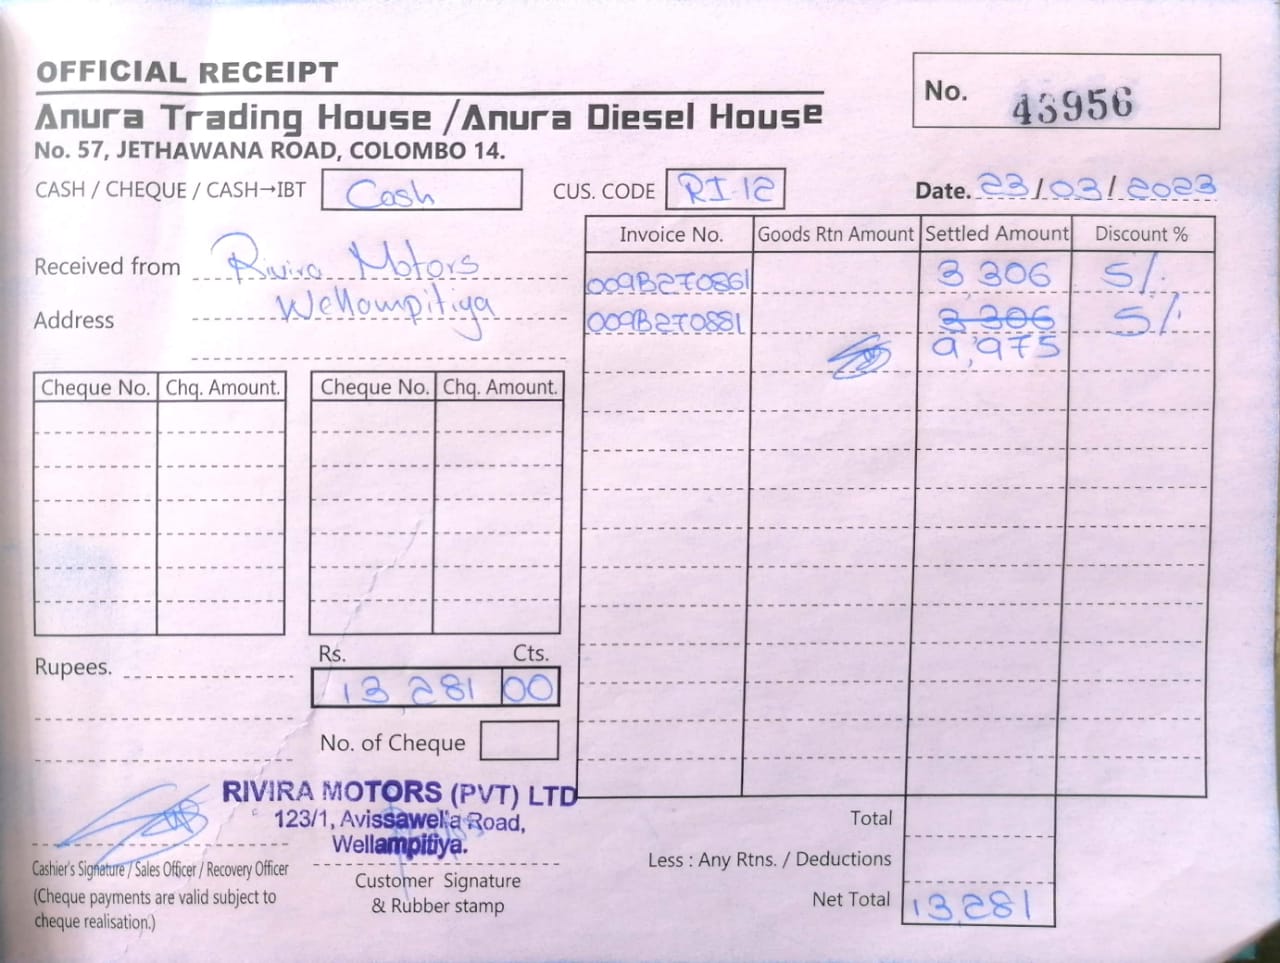 OFFICIAL RECEIPT
No. 43956
Anura Trading House / Anura Diesel House
No. 57, JETHAWANA ROAD, COLOMBO 14.
CASH / CHEQUE / CASH→IBT Cash CUS. CODE RI-12 Date. 23/03/2023
Received from Rivira Motors
Address Wellampitiya
Invoice No. Goods Rtn Amount Settled Amount Discount %
009B270861 3,306 5%
009B270881 3 306 5%
9,975
Cheque No. Chq. Amount. Cheque No. Chq. Amount.
Rupees. Rs. Cts.
13,281 00
No. of Cheque
RIVIRA MOTORS (PVT) LTD
123/1, Avissawella Road,
Wellampitiya.
Cashier's Signature / Sales Officer / Recovery Officer
(Cheque payments are valid subject to
cheque realisation.)
Customer Signature
& Rubber stamp
Total
Less : Any Rtns. / Deductions
Net Total 13,281